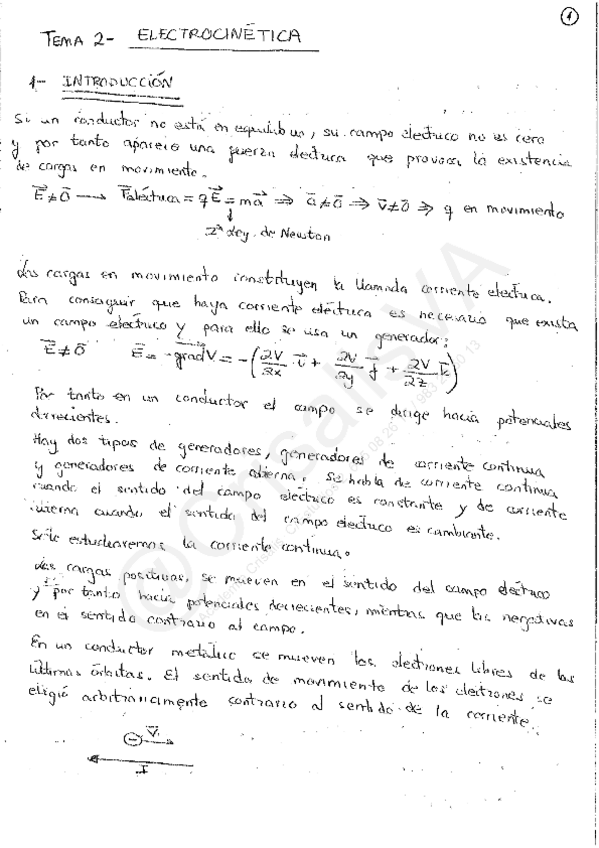 1
TEMA 2- ELECTROCINÉTICA
1- INTRODUCCIÓN
Si un conductor no está en equilibrio, su campo eléctrico no es cero
y por tanto aparece una fuerza eléctrica que provoca la existencia
de cargas en movimiento.
E⃗≠0⃗ → F⃗eléctrica = qE⃗ = ma⃗ ⇒ a⃗≠0⃗ ⇒ v⃗≠0⃗ ⇒ q en movimiento
↓
2ª Ley de Newton
Las cargas en movimiento constituyen la llamada corriente eléctrica.
Para conseguir que haya corriente eléctrica es necesario que exista
un campo eléctrico y para ello se usa un generador:
E⃗≠0⃗ E⃗ = -grad V = -(∂V/∂x i⃗ + ∂V/∂y j⃗ + ∂V/∂z k⃗)
Por tanto en un conductor el campo se dirige hacia potenciales
decrecientes.
Hay dos tipos de generadores, generadores de corriente continua
y generadores de corriente alterna. Se habla de corriente continua
cuando el sentido del campo eléctrico es constante y de corriente
alterna cuando el sentido del campo eléctrico es cambiante.
Sólo estudiaremos la corriente continua.
Las cargas positivas, se mueven en el sentido del campo eléctrico
y por tanto hacia potenciales decrecientes, mientras que las negativas
en el sentido contrario al campo.
En un conductor metálico se mueven los electrones libres de las
últimas órbitas. El sentido de movimiento de los electrones se
eligió arbitrariamente contrario al sentido de la corriente.
⊖ v⃗
I
@ConsalisVA